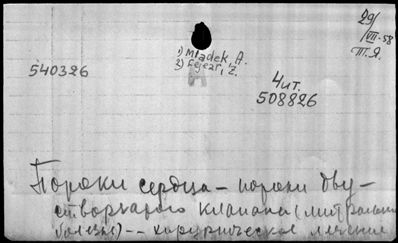 29/VII-58
Т.Я.
1) Mladek, A.
2) Fejear, Z.
540326
Чит.
508826
Пороки сердца – пороки дву-
створчатого клапана (митральные
болезни) -- хирургическое лечение